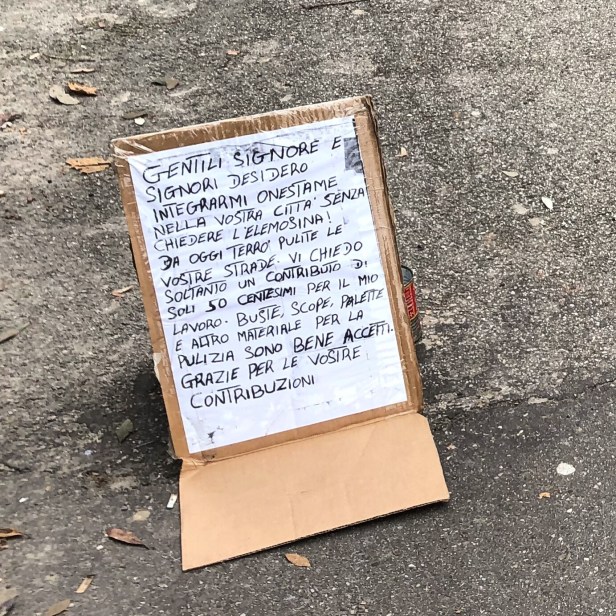 GENTILI SIGNORE E
SIGNORI DESIDERO
INTEGRARMI ONESTAME
NELLA VOSTRA CITTA' SENZA
CHIEDERE L'ELEMOSINA!
DA OGGI TERRO' PULITE LE
VOSTRE STRADE. VI CHIEDO
SOLTANTO UN CONTRIBUTO DI
SOLI 50 CENTESIMI PER IL MIO
LAVORO. BUSTE, SCOPE, PALETTE
E ALTRO MATERIALE PER LA
PULIZIA SONO BENE ACCETTI.
GRAZIE PER LE VOSTRE
CONTRIBUZIONI